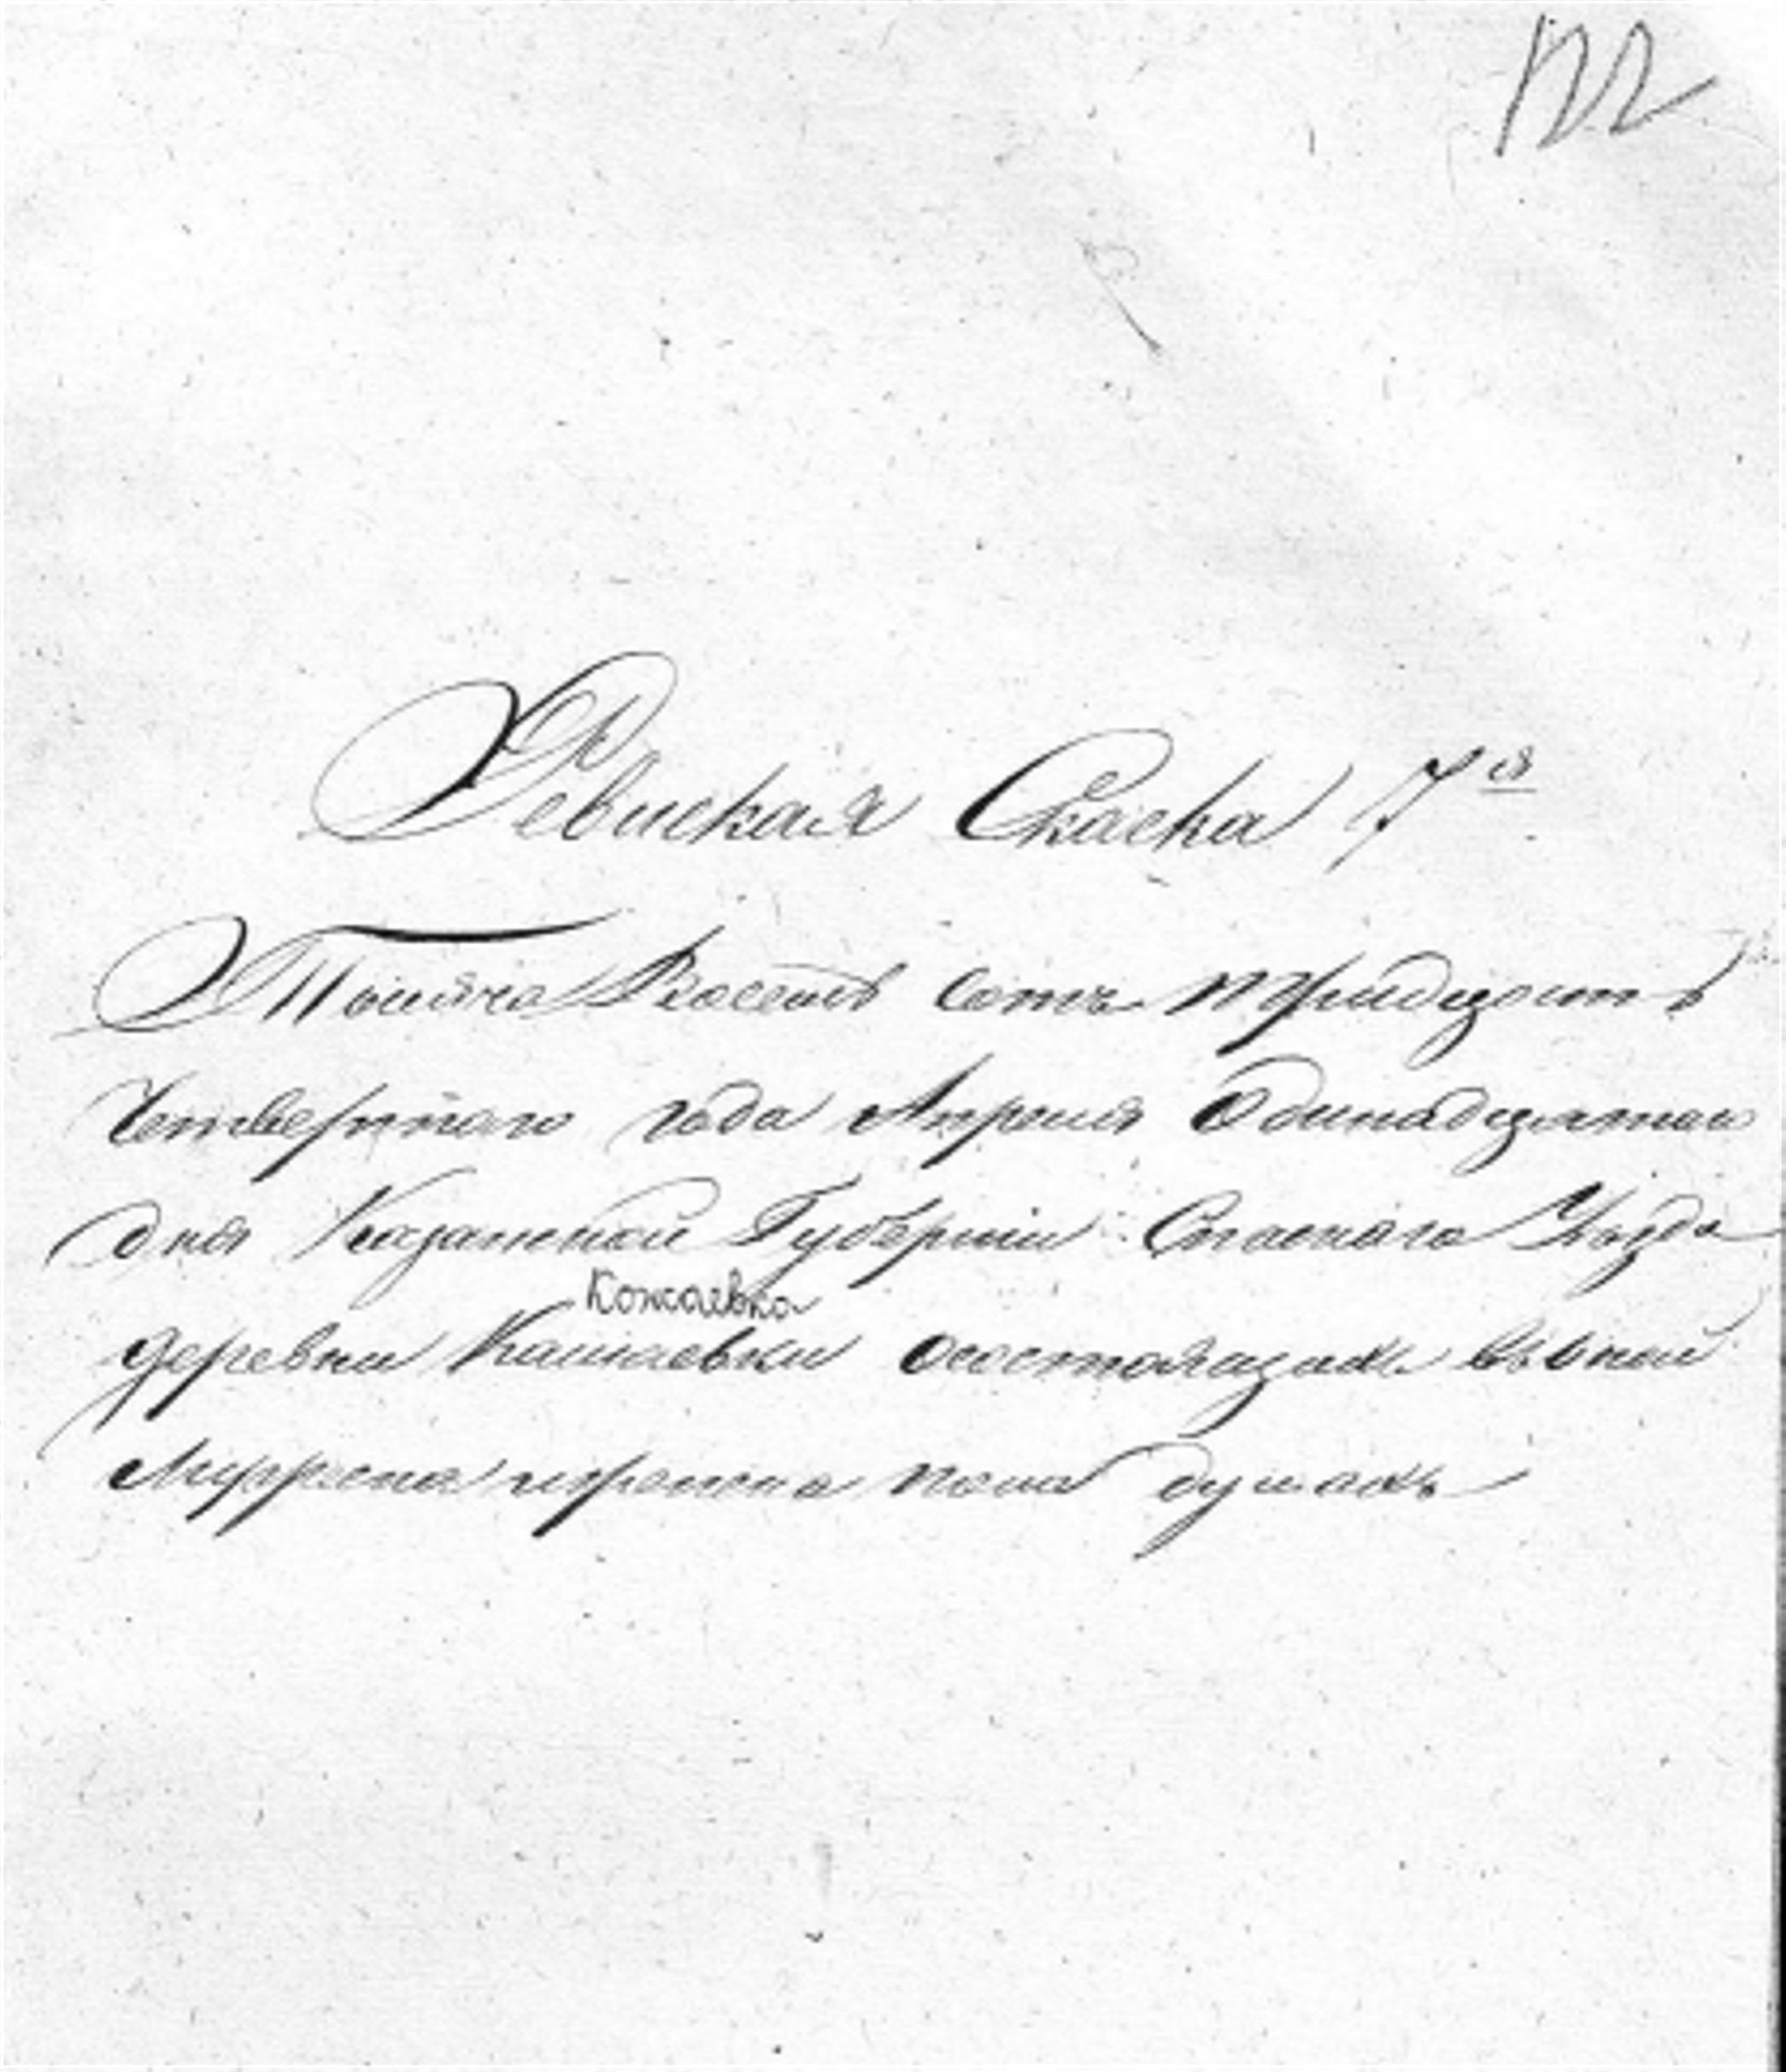 122
Ревиская Скаска 7ая
Тысяча Восемь сотъ тридцать
Четвертаго года Апреля Одинадцатаго
дня Казанской Губерніи Спаскаго Уезда
Кожаевка
деревни Кашаевки осостоящихъ въоной
Мужеска иженска пола душахъ